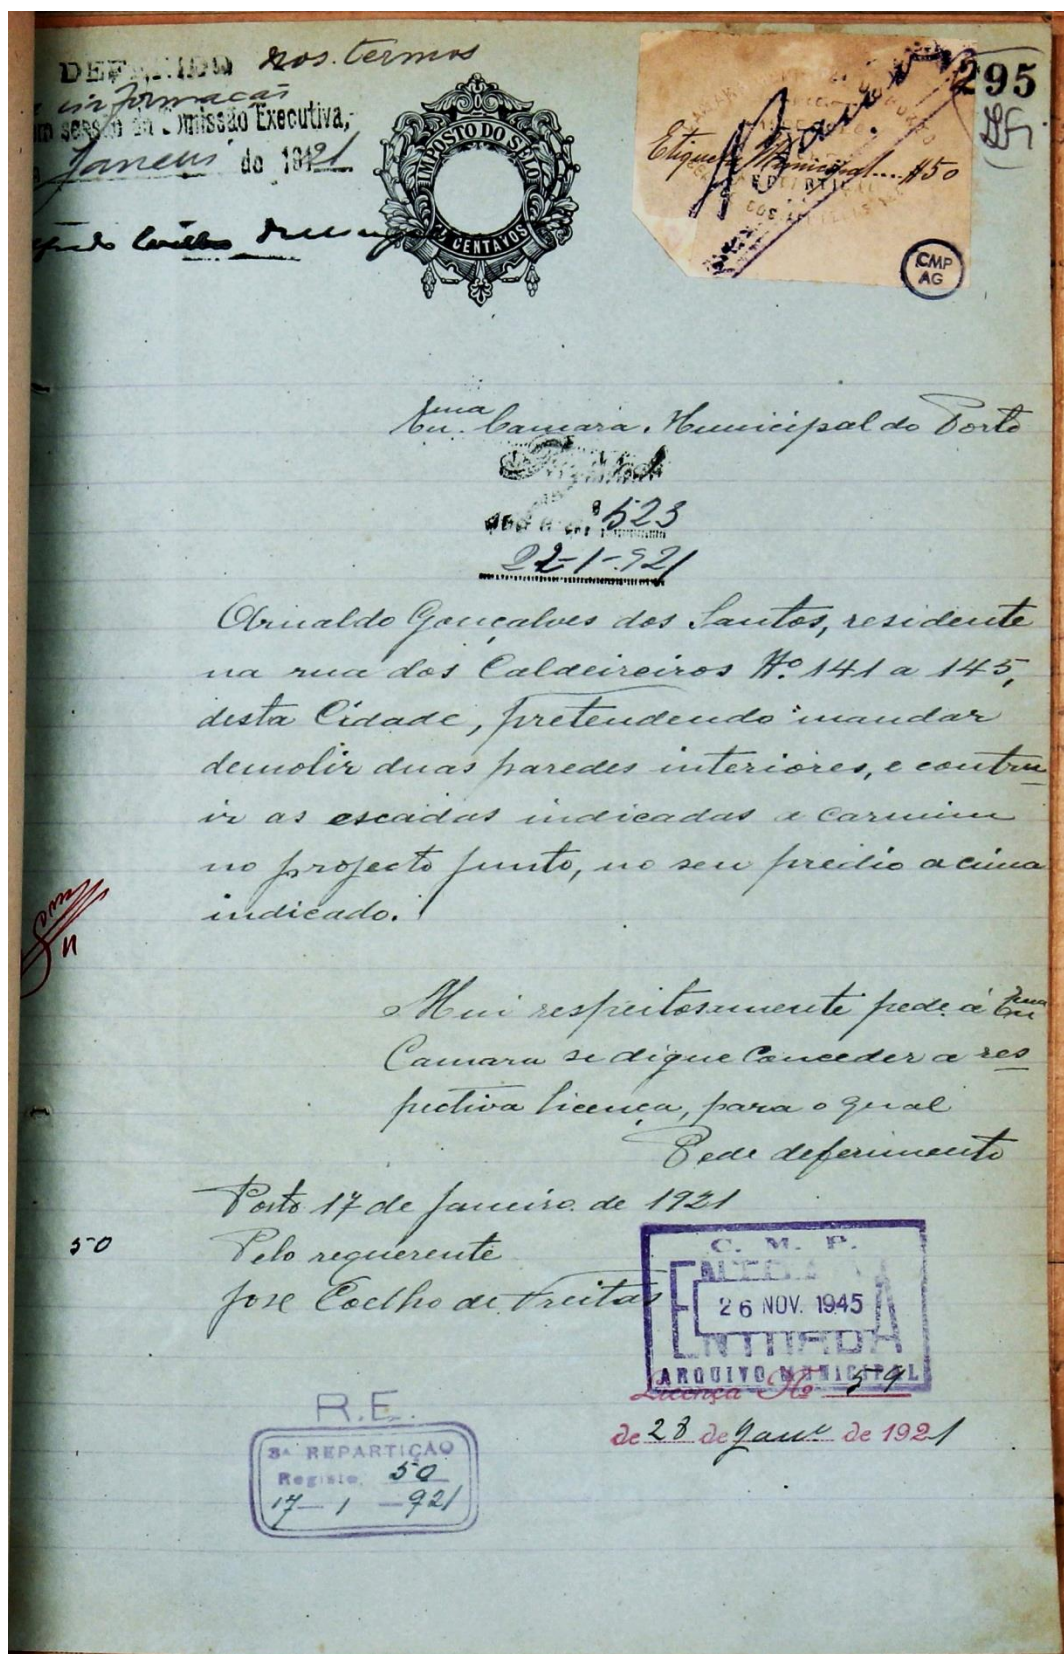 DEFERIDO nos termos
informação
em sessão da Comissão Executiva,
Janeiro de 1921
IMPOSTO DO SELO
CENTAVOS
Etiqueta Municipal.... $50
295
CMP
AG
Exma Camara Municipal do Porto
523
22-1-921
Arnaldo Gonçalves dos Santos, residente
na rua dos Caldeireiros Nº 141 a 145,
desta Cidade, pretendendo mandar
demolir duas paredes interiores, e contru-
ir as escadas indicadas a carmim
no projecto junto, no seu prédio acima
indicado.
Mui respeitosamente pede á Exma
Camara se digne Conceder a res
pectiva licença, para o qual
Pede deferimento
Porto 17 de Janeiro de 1921
50
Pelo requerente
José Coelho de Freitas
C. M. P.
26 NOV. 1945
ENTRADA
ARQUIVO MUNICIPAL
Licença Nº 59
de 28 de Janº de 1921
R.E.
3ª REPARTIÇÃO
Registo 50
17-1-921